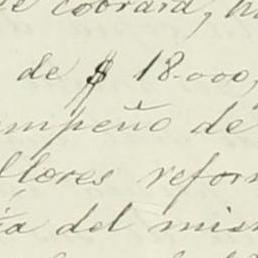 cobrará,
de $ 18.000,
empeño de
llores reform
ia del mism